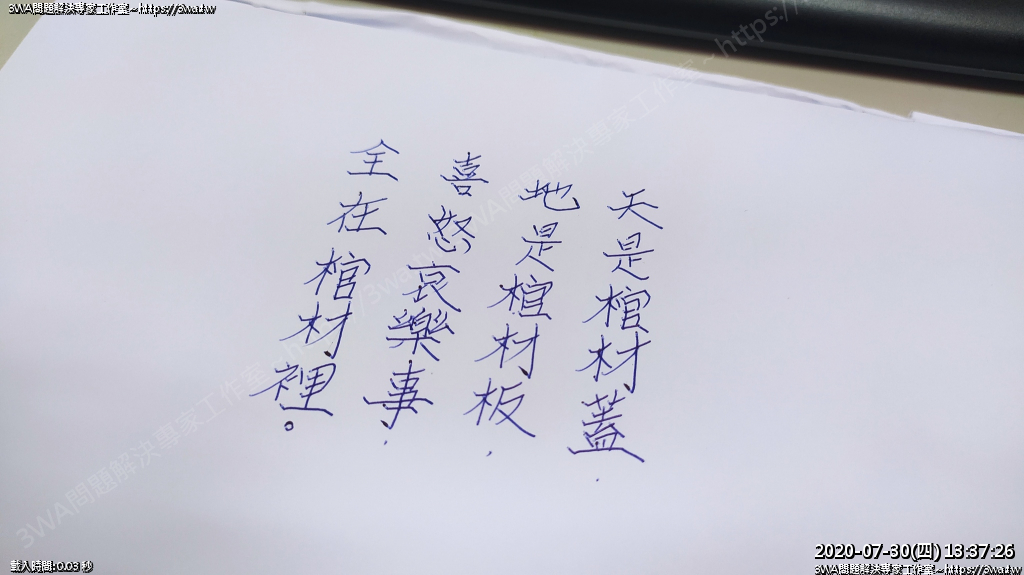 3WA問題解決專家工作室~https://3wa.tw
天是棺材蓋,
地是棺材板,
喜怒哀樂事,
全在棺材裡。
3WA問題解決專家工作室~https://3wa.tw
3WA問題解決專家工作室~https://
載入時間:0.03 秒
2020-07-30(四) 13:37:26
3WA問題解決專家工作室~https://3wa.tw